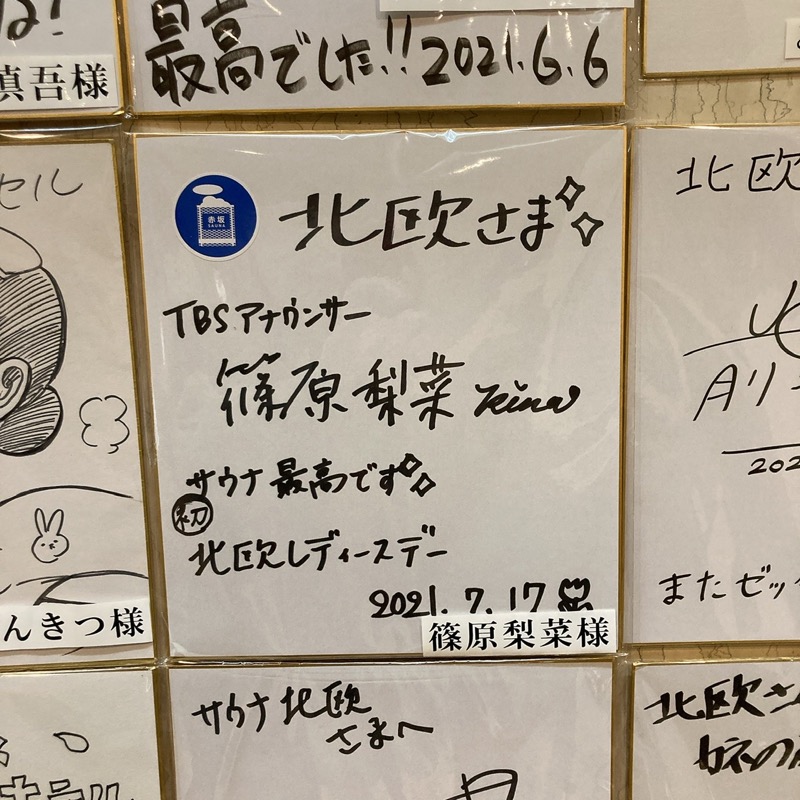 慎吾様
最高でした!! 2021.6.6
セル
赤坂
SAUNA
北欧さま
TBSアナウンサー
篠原梨菜 Rina
サウナ最高です
初
北欧レディースデー
2021.7.17
篠原梨菜様
北欧
またゼッ
んきつ様
サウナ北欧
さまへ
北欧さ